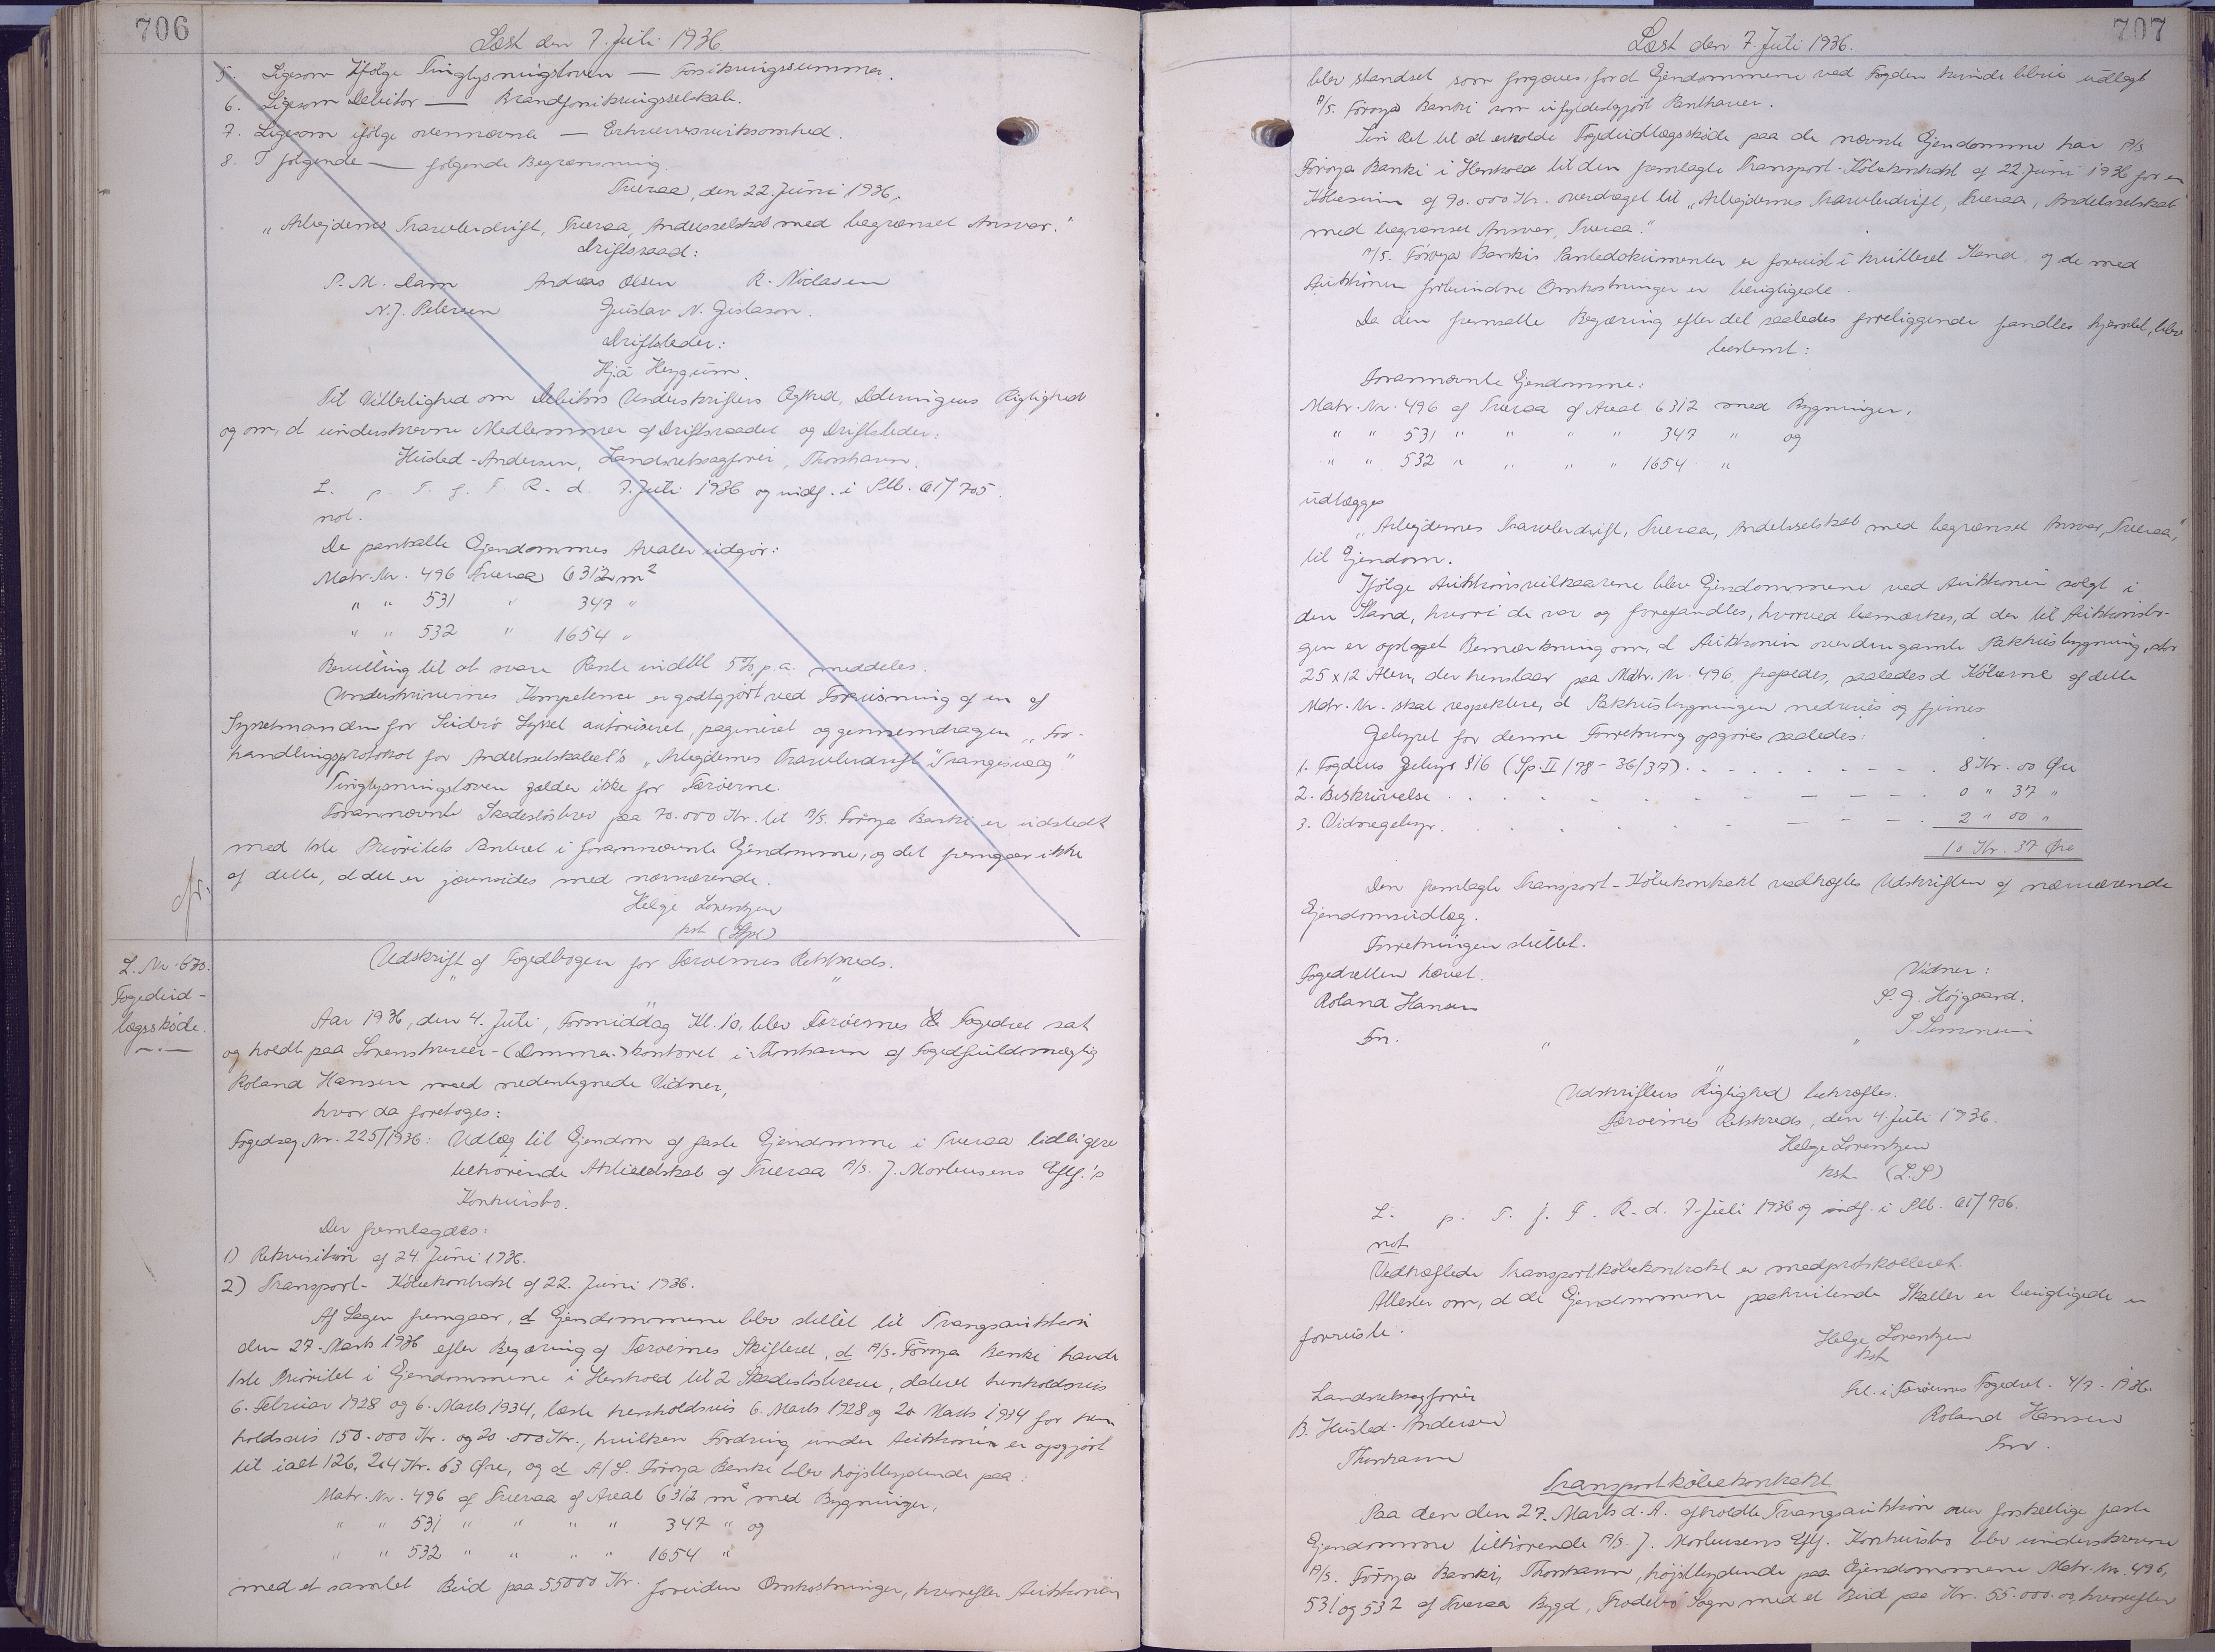 706
Læst den 7. Juli 1936.
5. Ligesom Ifølge Tinglysningsloven — Forsikringssummer.
6. Ligesom Debitor — Brandforsikringsselskab.
7. Ligesom ifølge ovennævnte — Erhvervsvirksomhed.
8. I følgende — følgende Begrænsning.
Tveraa, den 22. Juni 1936,
„Arbejdernes Trawlerdrift, Tveraa, Andelsselskab med begrænset Ansvar."
Driftsraad:
P. M. Dam Andreas Olsen R. Niclasen
N. J. Petersen Gustav N. Gislason.
Driftsleder:
Hjà Heygum.
Til Vitterlighed om Debitors Underskrifters Ægthed, Dateringens Rigtighed
og om, at underskrevne Medlemmer af Driftsraadet og Driftsleder:
Husted-Andersen, Landsretssagfører, Thorshavn.
L. p. T. f. F. R. d. 7. Juli 1936 og indf. i Sllb. 61/705.
not.
De pantsatte Ejendommes Arealer udgør:
Matr. Nr. 496 Tveraa 6312 m²
" " 531 " 347 "
" " 532 " 1654 "
Bevilling til at svare Rente indtil 5% p.a. meddeles.
Underskrivernes Kompetence er godtgjort ved Forevisning af en af
Sysselmanden for Suderø Syssel autoriseret, pagineret og gennemdragen „For-
handlingsprotokol for Andelsselskabet's „Arbejdernes Trawlerdrift" Trangisvaag".
Tinglysningsloven gælder ikke for Færøerne.
Forannævnte Skadesløsbrev paa 70.000 Kr. til A/S. Føroya Banki er udstedt
med 1ste Prioritets Panteret i forannævnte Ejendomme, og det fremgaar ikke
af dette, at det er jævnsides med nærværende.
Helge Lorentzen
kst. (Sspl)
L. Nr. 670.
Fogedud-
lægsskøde.
Udskrift af Fogedbogen for Færøernes Retskreds.
Aar 1936, den 4. Juli, Formiddag Kl. 10, blev Færøernes Fogedret sat
og holdt paa Sorenskriver-(Dommer-)kontoret i Thorshavn af Fogedfuldmægtig
Roland Hansen med nedentegnede Vidner,
hvor da foretoges:
Fogedsag Nr. 225/1936: Udlæg til Ejendom af faste Ejendomme i Tveraa tidligere
tilhørende Aktieselskab af Tveraa A/S. J. Mortensens Eftf.'s
Konkursbo.
Der fremlagdes:
1) Rekvisition af 24. Juni 1936.
2) Transport-Købekontrakt af 22. Juni 1936.
Af Sagen fremgaar, at Ejendommene blev stillet til Tvangsauktion
den 27. Marts 1936 efter Begæring af Færøernes Skifteret, at A/S. Føroya Banki havde
1ste Prioritet i Ejendommene i Henhold til 2 Skadesløsbreve, dateret henholdsvis
6. Februar 1928 og 6. Marts 1934, læste henholdsvis 6. Marts 1928 og 20 Marts 1934 for hen
holdsvis 150.000 Kr. og 20.000 Kr., hvilken Fordring under Auktionen er opgjort
til ialt 126.264 Kr. 63 Øre, og at A/S. Føroya Banki blev højstbydende paa:
Matr. Nr. 496 af Tveraa af Areal 6312 m² med Bygninger,
" " 531 " " " " 347 " og
" " 532 " " " " 1654 "
med et samlet Bud paa 55000 Kr. foruden Omkostninger, hvorefter Auktionen
707
Læst den 7. Juli 1936.
blev standset som forgæves, fordi Ejendommene ved Fogden kunde blive udlagt
A/S. Føroya Banki som ufyldestgjort Panthaver.
I Stedet til at erholde Fogedudlægsskøde paa de nævnte Ejendomme har A/S.
Føroya Banki i Henhold til den fremlagte Transport-Købekontrakt af 22. Juni 1936 for en
Købesum af 90.000 Kr. overdraget til „Arbejdernes Trawlerdrift, Tveraa, Andelsselskab
med begrænset Ansvar, Tveraa."
A/S. Føroya Bankis Pantedokumenter er forevist i kvitteret Stand, og de med
Auktionen forbundne Omkostninger er berigtigede.
Da den fremsatte Begæring efter det saaledes foreliggende fandtes hjemlet, blev
bestemt:
Forannævnte Ejendomme:
Matr. Nr. 496 af Tveraa af Areal 6312 med Bygninger,
" " 531 " " " " 347 " og
" " 532 " " " " 1654 "
udlægges
„Arbejdernes Trawlerdrift, Tveraa, Andelsselskab med begrænset Ansvar, Tveraa",
til Ejendom.
Ifølge Auktionsvilkaarene blev Ejendommene ved Auktionen solgt i
den Stand, hvori de var og forefandtes, hvorved bemærkes, at der til Auktionsbo-
gen er optaget Bemærkning om, at Auktionen over den gamle Pakhusbygning, stor
25 x 12 Alen, der henstaar paa Matr. Nr. 496, frafaldes, saaledes at Køberne af dette
Matr. Nr. skal respektere, at Pakhusbygningen nedrives og fjernes.
Gebyret for denne Forretning opgøres saaledes:
1. Fogdens Gebyr §16 (Sp. II/78-36/37) . . . . 8 Kr. 00 Øre
2. Beskrivelse . . . . 0 " 37 "
3. Vidnegebyr. . . . . 2 " 00 "
10 Kr. 37 Øre
Den fremlagte Transport-Købekontrakt vedhæftes Udskriften af nærværende
Ejendomsudlæg.
Forretningen sluttet.
Fogedretten hævet.
Roland Hansen
Fm.
Vidner:
P. J. Højgaard.
S. Simonsen
Udskriftens Rigtighed bekræftes.
Færøernes Retskreds, den 4. Juli 1936.
Helge Lorentzen
kst. (L.S)
L. p. T. f. F. R. d. 7. Juli 1936 og indf. i Sllb. 61/706.
not.
Vedhæftede Transportkøbekontrakt er medprotokolleret.
Attester om, at de Ejendommene paahvilende Skatter er berigtigede er
foreviste.
Helge Lorentzen
kst.
Landsretssagfører
B. Husted-Andersen
Thorshavn
Frl. i Færøernes Fogedret. 4/7-1936.
Roland Hansen
Fm.
Transportkøbekontrakt
Paa den den 27. Marts d. A. afholdte Tvangsauktion over forskellige faste
Ejendomme tilhørende A/S. J. Mortensens Eftf. Konkursbo blev underskrevne
A/S. Føroya Banki, Thorshavn, højstbydende paa Ejendommene Matr. Nr. 496,
531 og 532 af Tveraa Bygd, Frodebø Sogn med et Bud paa Kr. 55.000.00, hvorefter